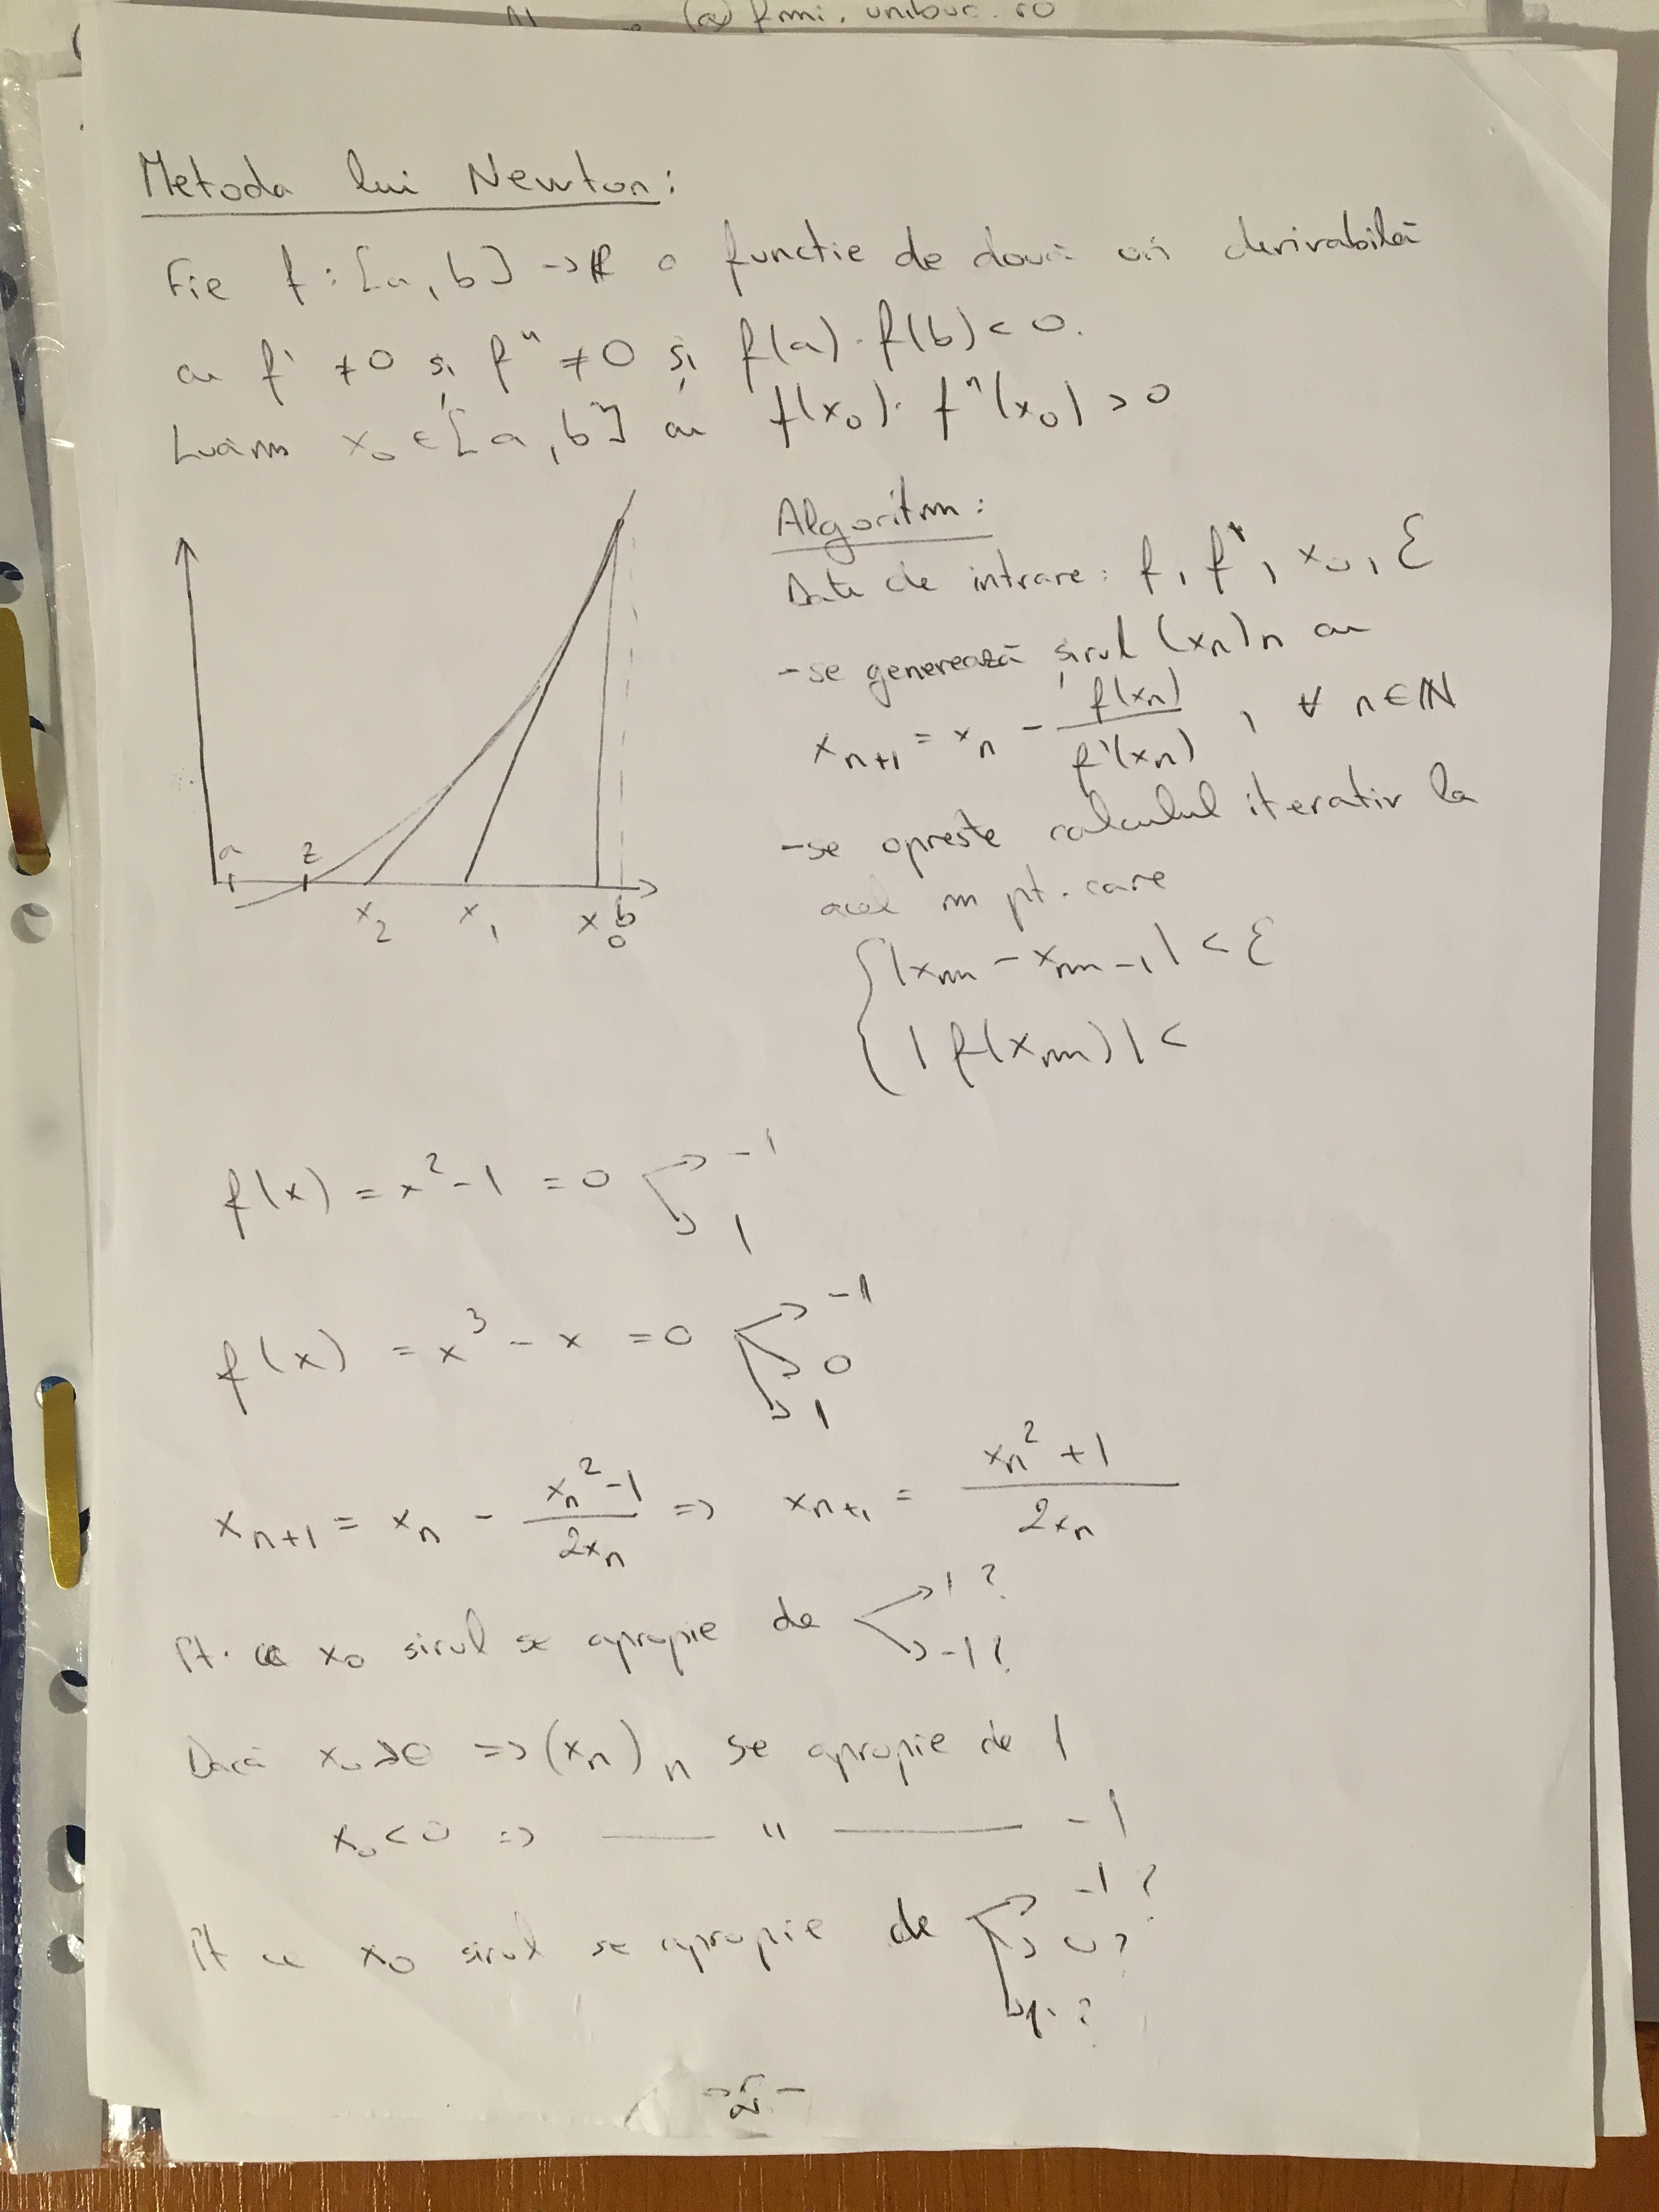 @fmi.unibuc.ro
Metoda lui Newton:
Fie f:[a,b] -> R o functie de două ori derivabilă
cu f' ≠0 și f" ≠0 și f(a)·f(b)<0.
Luăm x₀ ∈[a,b] cu f(x₀)·f"(x₀)>0
a z x₂ x₁ x₀ b
Algoritm:
Date de intrare: f, f', x₀, ε
-se generează șirul (xn)n cu
xn+1 = xn - f(xn)/f'(xn), ∀ n∈ℕ
-se opreste calculul iterativ la
acel m pt. care
{|xm - xm-1| < ε
|f(xm)| <
f(x) = x²-1 = 0 -1
1
f(x) = x³ - x = 0 -1
0
1
xn+1 = xn - (xn²-1)/2xn => xn+1 = (xn²+1)/2xn
Pt. ce x₀ sirul se apropie de 1?
-1?
Dacă x₀>0 => (xn)n se apropie de 1
x₀<0 => — " — -1
Pt ce x₀ sirul se apropie de -1?
0?
1?